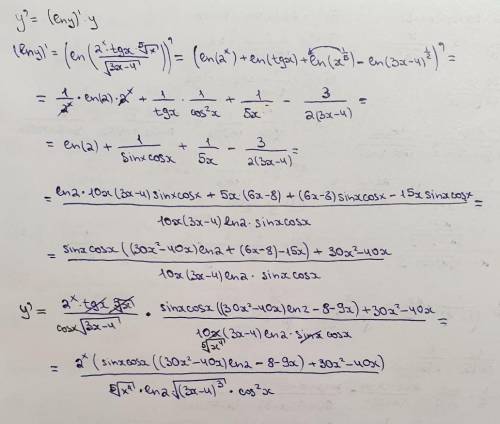 y' = (ln y)' · y
(ln y)' = (ln(2^x · tg x · ⁵√x / √(3x-4)))' = (ln(2^x) + ln(tg x) + ln(x^(1/5)) - ln(3x-4)^(1/2))' =
= 1/2^x · ln(2) · 2^x + 1/tg x · 1/cos²x + 1/5x - 3/2(3x-4) =
= ln(2) + 1/sin x cos x + 1/5x - 3/2(3x-4) =
= ln2 · 10x(3x-4) sin x cos x + 5x(6x-8) + (6x-8) sin x cos x - 15x sin x cos x / 10x(3x-4) ln2 · sin x cos x =
= sin x cos x ((30x²-40x) ln2 + (6x-8) - 15x) + 30x²-40x / 10x(3x-4) ln2 · sin x cos x
y' = 2^x · tg x · ⁵√x / cos x √(3x-4) · sin x cos x ((30x²-40x) ln2 - 8 - 9x) + 30x²-40x / 10x (3x-4) ln2 · sin x cos x =
⁵√x⁴
= 2^x (sin x cos x ((30x²-40x) ln2 - 8 - 9x) + 30x²-40x) / ⁵√x⁴ · ln2 · √(3x-4)³ · cos²x